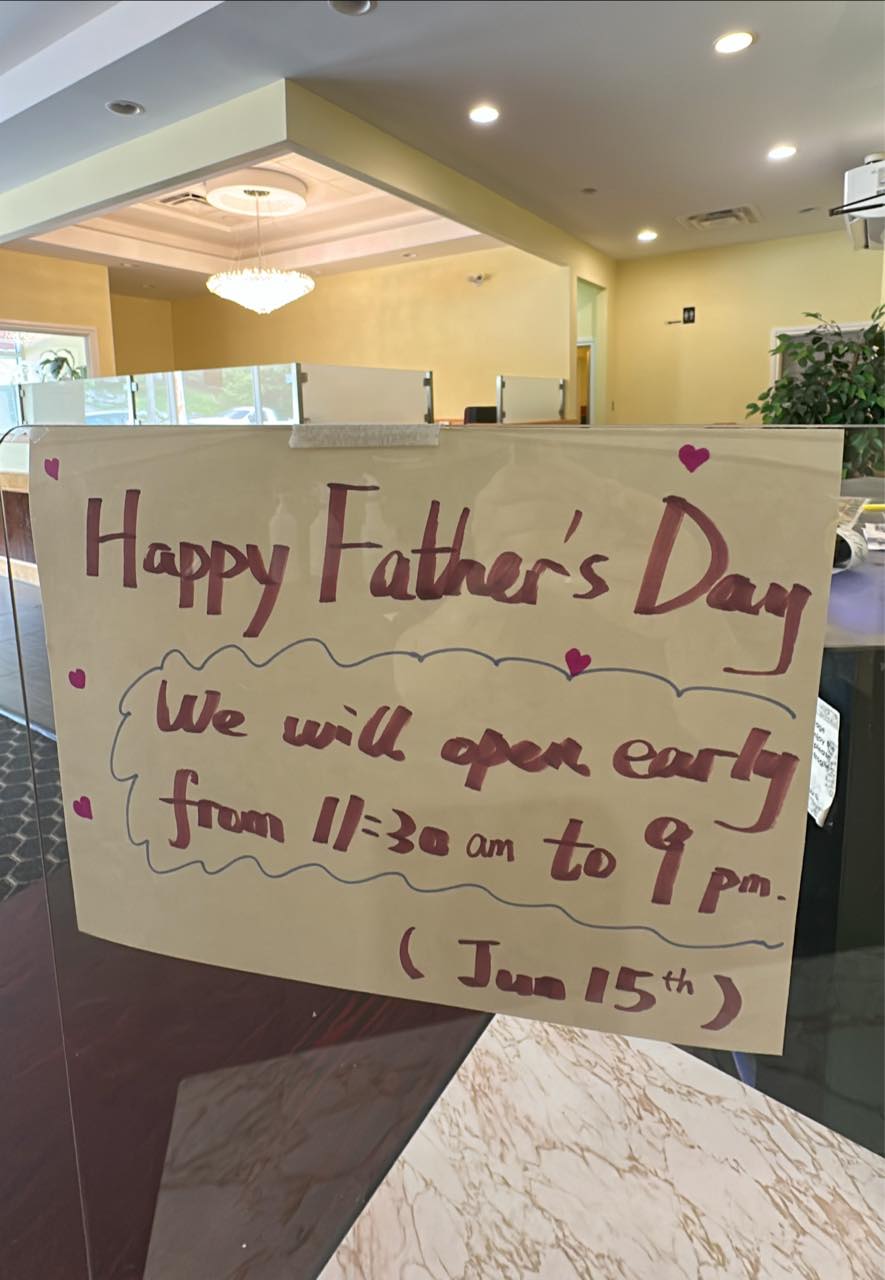 Happy Father's Day
We will open early
from 11:30 am to 9 pm.
( Jun 15th )